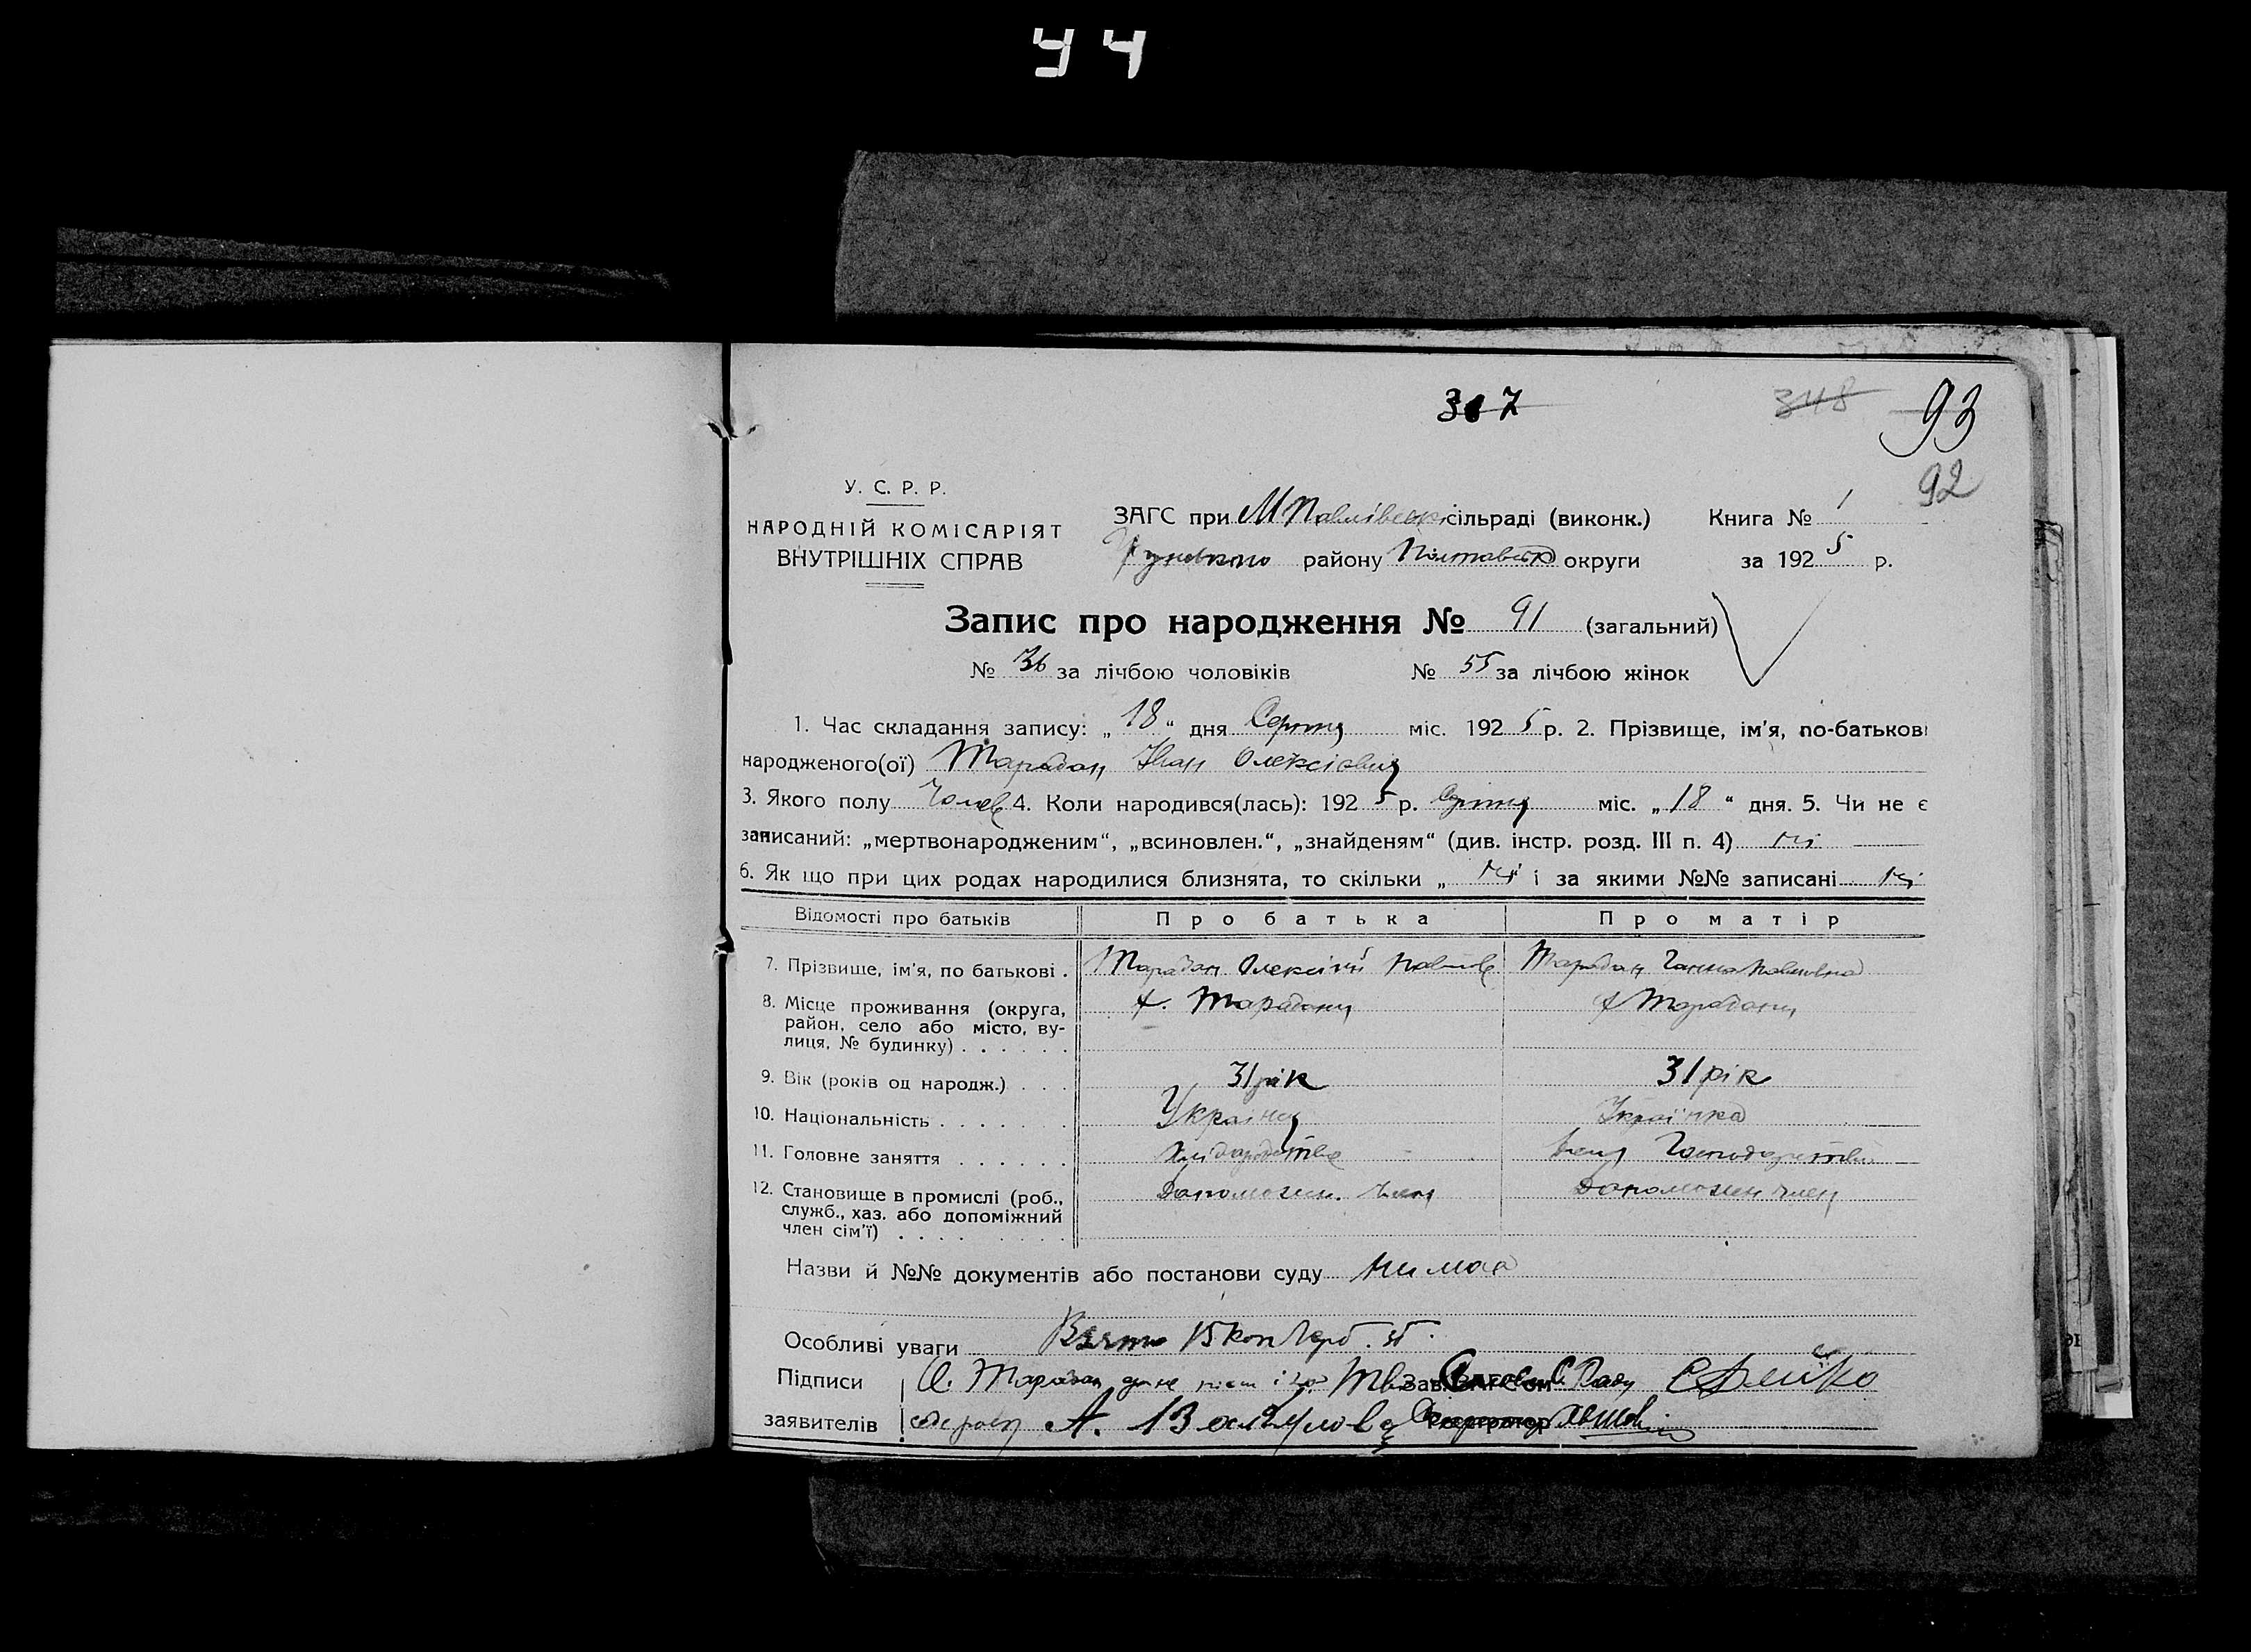 94
307 348 93
92
У. С. Р. Р.
НАРОДНІЙ КОМІСАРІЯТ
ВНУТРІШНІХ СПРАВ
ЗАГС при М Павлівськ сільраді (виконк.) Книга № 1
району Полтавськ округи за 1925 р.
Запис про народження № 91 (загальний)
№ 36 за лічбою чоловіків № 55 за лічбою жінок
1. Час складання запису: „ 18 “ дня Серпня міс. 1925 р. 2. Прізвище, ім'я, по-батькові
народженого(ої) Тарадан Іван Олексієвич
3. Якого полу Чолов 4. Коли народився(лась): 1925 р. Серпня міс. „ 18 “ дня. 5. Чи не є
записаний: „мертвонародженим“, „всиновлен.“, „знайденям“ (див. інстр. розд. III п. 4) ні
6. Як що при цих родах народилися близнята, то скільки „ ні і за якими №№ записані ні
Відомості про батьків Про батька Про матір
7. Прізвище, ім'я, по батькові . Тарадан Олексій Павлов Тарадан Ганна Павловна
8. Місце проживання (округа, х. Тарадани х Тарадани
район, село або місто, ву-
лиця, № будинку) . . . . . .
9. Вік (років од народж.) . . . 31 рік 31 рік
10. Національність . . . . . . . Українец Українка
11. Головне заняття . . . . . . Хлібородство Господарство
12. Становище в промислі (роб., Допоможн. член Допоможн член
служб., хаз. або допоміжний
член сім'ї) . . . . . . . . .
Назви й №№ документів або постанови суду Нимає
Особливі уваги Взято 15 коп герб. зб.
Підписи О. Тарадан Зав. ЗАГС'ом
заявителів А. Секретар